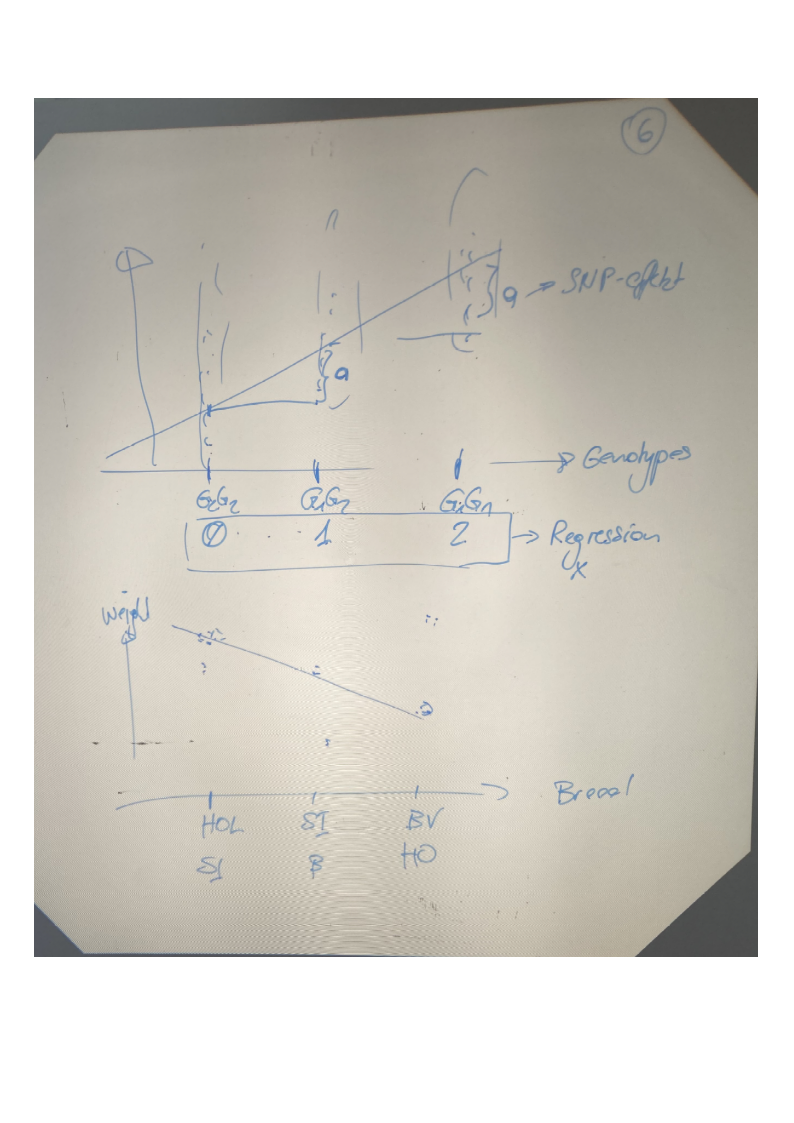 6
a → SNP-effekt
a
→ Genotypes
G2G2 G1G2 G1G1
0 1 2 → Regression
x
Weight
Breed
HOL SI BV
SI B HO